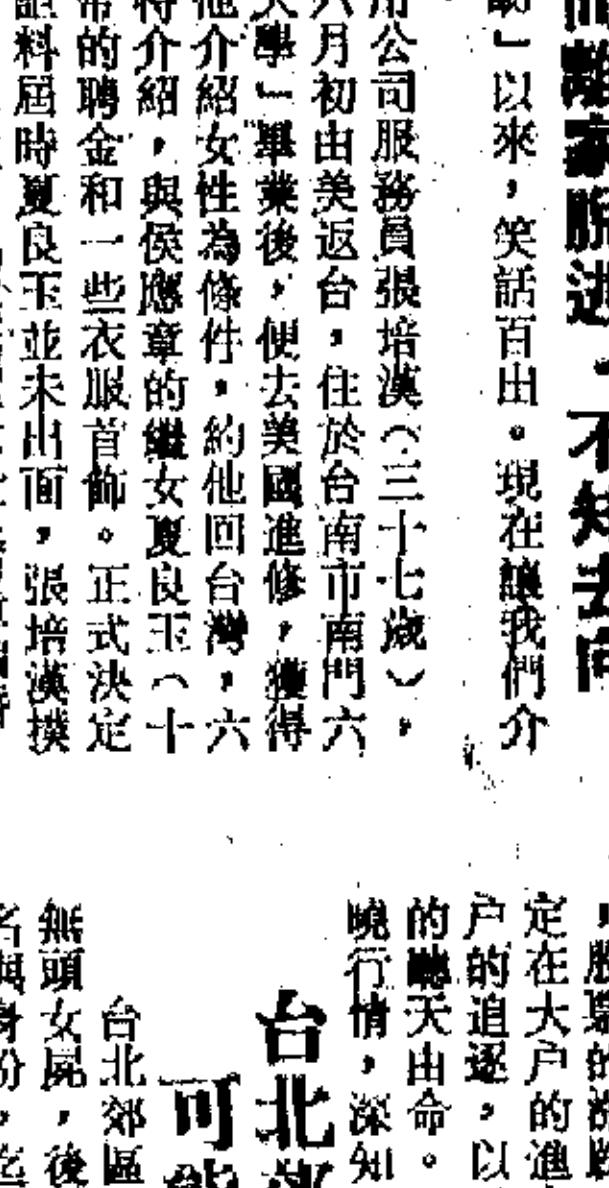 而離家脫逃，不知去向
」以來，笑話百出。現在讓我們介
用公司服務員張培漢（三十七歲），
六月初由美返台，住於台南市南門六
大學」畢業後，便去美國進修，獲得
他介紹女性為條件，約他回台灣，六
特介紹，與侯應章的繼女夏良玉（十
常的聘金和一些衣服首飾。正式決定
料屆時夏良玉並未出面，張培漢撲
定在大户的進
户的追逐，以
的聽天由命。
曉行情，深知
台北
可能
台北郊區
無頭女屍，後
名與身份，迄